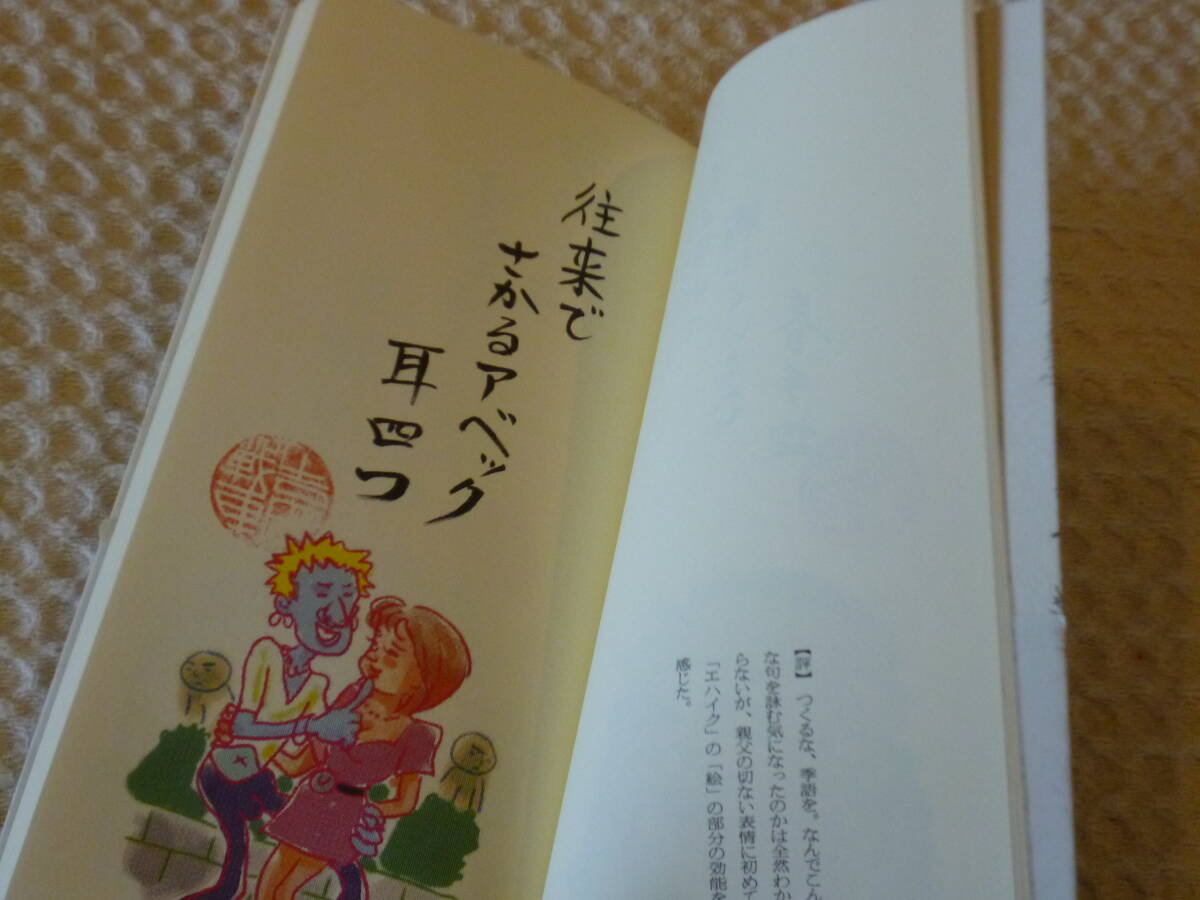 【評】 つくるな、季語を。なんでこん
な句を詠む気になったのかは全然わか
らないが、親父の切ない表情に初めて
「エハイク」の「絵」の部分の効能を
感じた。
往来で
さかるアベック
耳四つ